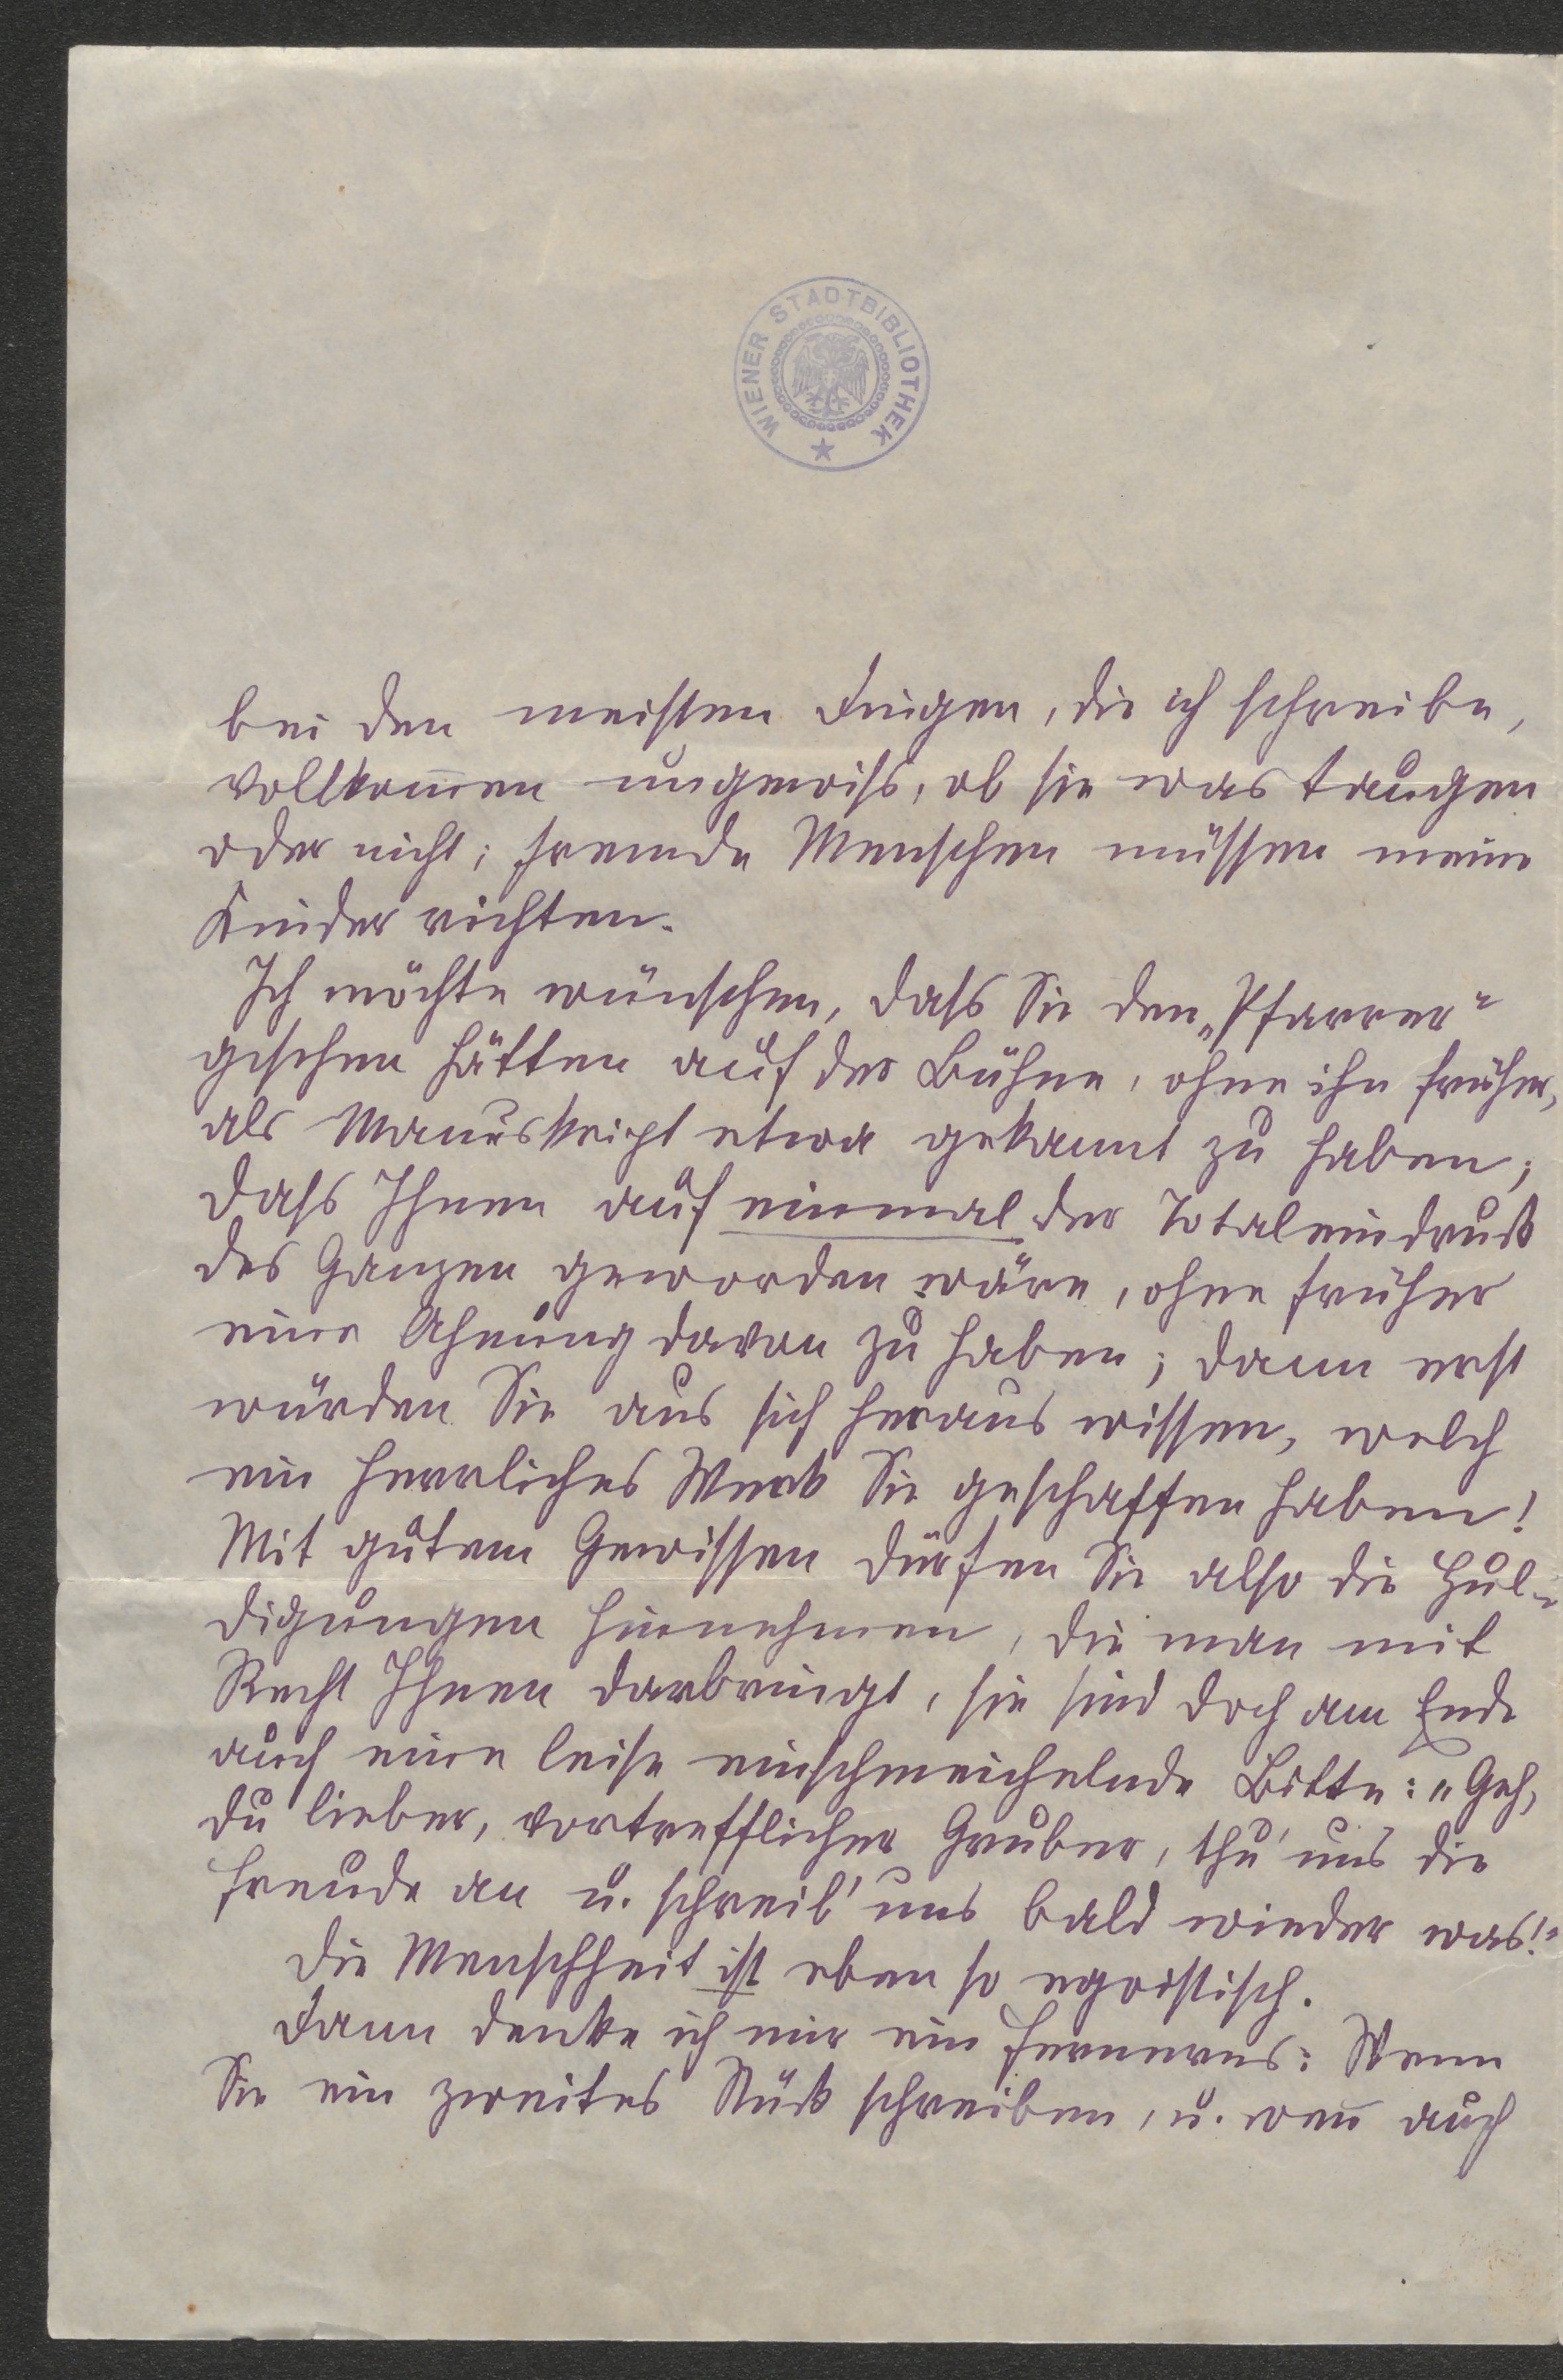 WIENER STADTBIBLIOTHEK
bei den meisten Dingen, die ich schreibe,
vollkom̅en ungewiss, ob sie was taugen
oder nicht; fremde Menschen müssen meine
Kinder richten.
Ich möchte wünschen, dass Sie den „Pfarrer“
gesehen hätten auf der Bühne, ohne ihn früher,
als Manuskript etwa gekannt zu haben;
dass Ihnen auf einmal der Totaleindruck
des Ganzen geworden wäre, ohne früher
eine Ahnung davon zu haben; dann erst
würden Sie aus sich heraus wissen, welch
ein herrliches Werk Sie geschaffen haben!
Mit gutem Gewissen dürfen Sie also die Hul-
digungen hinnehmen, die man mit
Recht Ihnen darbringt, sie sind doch am Ende
auch eine leise einschmeichelnde Bitte: „Geh,
du lieber, vortrefflicher Gruber, thu' uns die
Freude an u. schreib' uns bald wieder was!“
Die Menschheit ist eben so egoistisch.
Dann denke ich mir ein Ferneres: Wenn
Sie ein zweites Stück schreiben, u. wen̅ auch